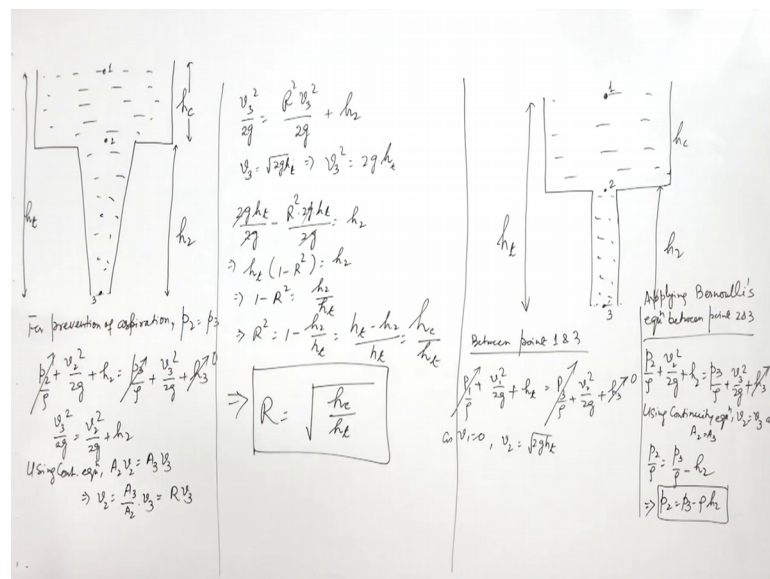 1
h_c
2
h_t
h_2
3
For prevention of aspiration, p_2 = p_3
p_2/ρ + v_2^2/2g + h_2 = p_3/ρ + v_3^2/2g + h_3 0
v_3^2/2g = v_2^2/2g + h_2
Using Cont. eqn, A_2 v_2 = A_3 v_3
⇒ v_2 = A_3/A_2 . v_3 = R v_3
v_3^2/2g = R^2 v_3^2/2g + h_2
v_3 = √2gh_t ⇒ v_3^2 = 2gh_t
2gh_t/2g - R^2.2gh_t/2g = h_2
⇒ h_t (1-R^2) = h_2
⇒ 1-R^2 = h_2/h_t
⇒ R^2 = 1 - h_2/h_t = h_t-h_2/h_t = h_c/h_t
⇒ R = √h_c/h_t
1
h_c
2
h_t
h_2
3
Between point 1 & 3
p_1/ρ + v_1^2/2g + h_t = p_3/ρ + v_3^2/2g + h_3 0
as v_1=0, v_2 = √2gh_t
Applying Bernoulli's
eqn between point 2&3
p_2/ρ + v_2^2/2g + h_2 = p_3/ρ + v_3^2/2g + h_3
Using Continuity eqn, v_2 = v_3 as
A_2=A_3
p_2/ρ = p_3/ρ - h_2
⇒ p_2 = p_3 - ρh_2